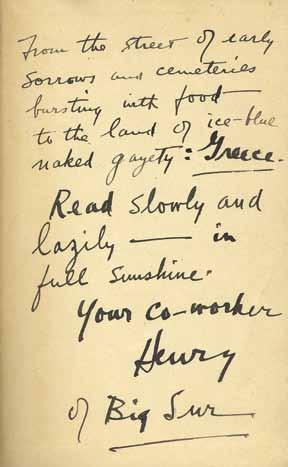 From the street of early
sorrows and cemeteries
bursting with food
to the land of ice-blue
naked gayety: Greece.
Read slowly and
lazily — in
full sunshine.
Your co-worker
Henry
of Big Sur